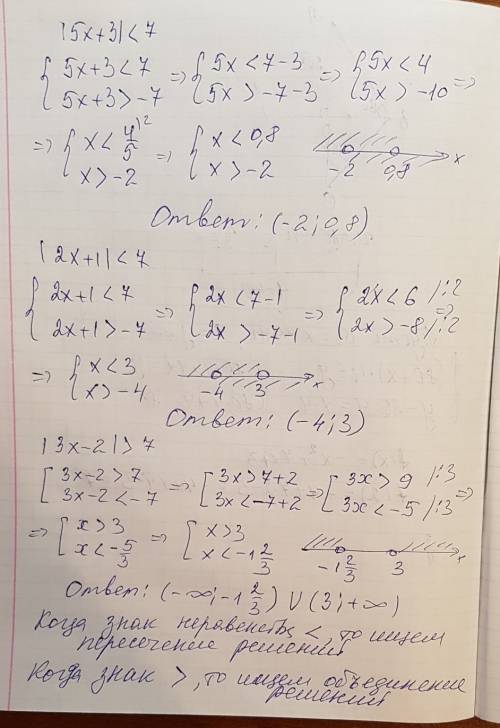 |5x+3|<7
{5x+3<7 5x+3>-7 => {5x<7-3 5x>-7-3 => {5x<4 5x>-10 =>
=> {x<4/5)² x>-2 => {x<0,8 x>-2 -2 0,8 x
Ответ: (-2; 0,8)
|2x+1|<7
{2x+1<7 2x+1>-7 => {2x<7-1 2x>-7-1 => {2x<6 /:2 2x>-8 /:2 =>
=> {x<3 x>-4 -4 3 x
Ответ: (-4; 3)
|3x-2|>7
[3x-2>7 3x-2<-7 => [3x>7+2 3x<-7+2 => [3x>9 /:3 3x<-5 /:3 =>
=> [x>3 x<-5/3 => [x>3 x<-1 2/3 -1 2/3 3 x
Ответ: (-∞; -1 2/3) U (3; +∞)
Когда знак неравенств <, то ищем
пересечение решений
Когда знак >, то ищем объединение
решений